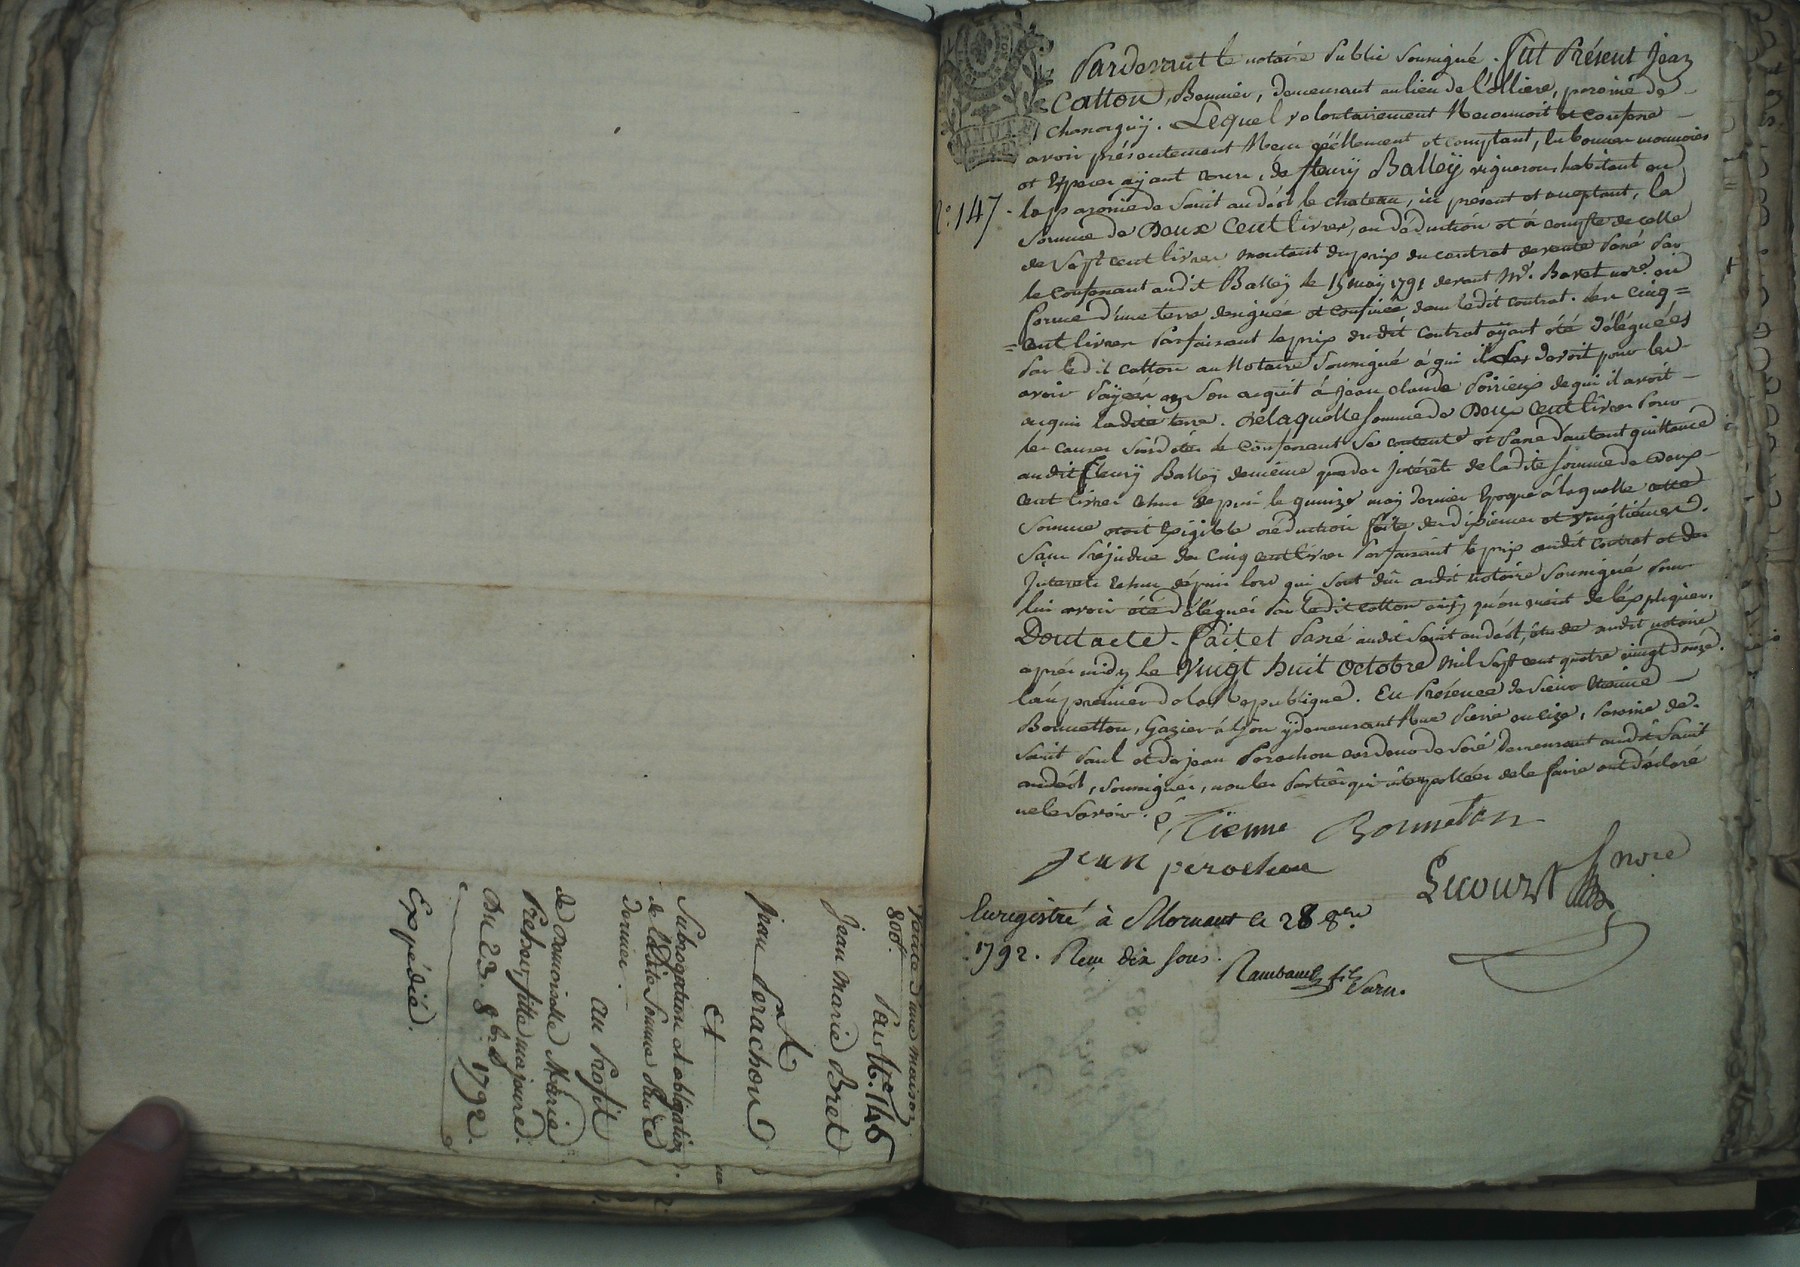 Vente d'une maison
800# Par N.º 146
Jean Marie Bret
à
Jean Perachon
et
Subrogation et obligation
de la dite somme par ce
dernier.
au Profit
de Demoiselle Marie
fille majeure.
Du 23. 8bre 1792.
Expédié.
N.º 147.
Pardevant le notaire Public soussigné. Fut Présent Jean
Catton, demeurant au lieu de Lolliere, paroisse de
Chassagny. Lequel volontairement Reconnoit et confesse
avoir présentement Reçu réellement et comptant, en bonnes monnoies
et Espèces ayant cours, de fleury Balleÿ vigneron habitant en
la paroisse de Saint andéol le chateau, ici présent et acceptant, la
somme de Deux Cent livres, en déduction et à compte de celle
de Sept cent livres montant du prix du contrat de vente Passé Par
le Confessant audit Balleÿ le 15 may 1791 devant Mr. Bavet nore. en
forme d'une terre designée et confinée dans ledit contrat. les Cinq=
=cent livres Parfaisant le prix dudit contrat ayant été Déléguées
Par ledit Catton au Notaire soussigné à qui il les devoit pour les
avoir Payées en son acquit à Jean Claude Poirieux de qui il avoit
acquis ladite terre. De laquelle somme de Deux Cent livres Pour
les causes susdites le Confessant se contente et Passe d'autant quittance
audit fleury Balleÿ de même que des Intérêts de ladite somme de Deux
cent livres échus depuis le quinze may dernier Epoque à laquelle cette
somme etoit Exigible déduction faite des dixiemes et vingtiemes.
Sans Préjudice des Cinq cent livres Parfaisant le prix audit contrat et des
Interets échus depuis lors qui sont dûs audit notaire soussigné Pour
lui avoir été délégués Par ledit Catton ainsy qu'on vient de l'expliquer.
Dont acte. Fait et Passé audit Saint andéol, étude audit notaire
après midy le Vingt huit Octobre Mil Sept cent quatre vingt douze.
l'an premier de la République. En Présence de Sieur Etienne
Bonnetton, Gazier à Lyon y demeurant Rue Pierre encize, Paroisse de
Saint Paul et de jean Perachon demeurant audit Saint
andéol, soussignés, non les Parties qui interpellées de le faire ont déclaré
ne le savoir.
Etienne Bonneton
jean perachon
Lecourt nore
Enregistré à Mornant le 28 8bre.
1792. Reçu dix sous.